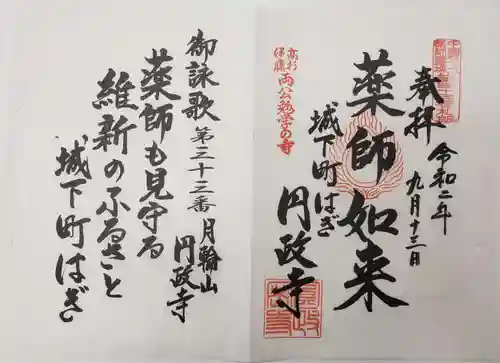 奉拝
令和二年
九月十三日
薬師如来
城下町はぎ
円政寺
高杉
伊藤
両公勉学の寺
御詠歌 第三十三番 月輪山
円政寺
薬師も見守る
維新のふるさと
城下町はぎ